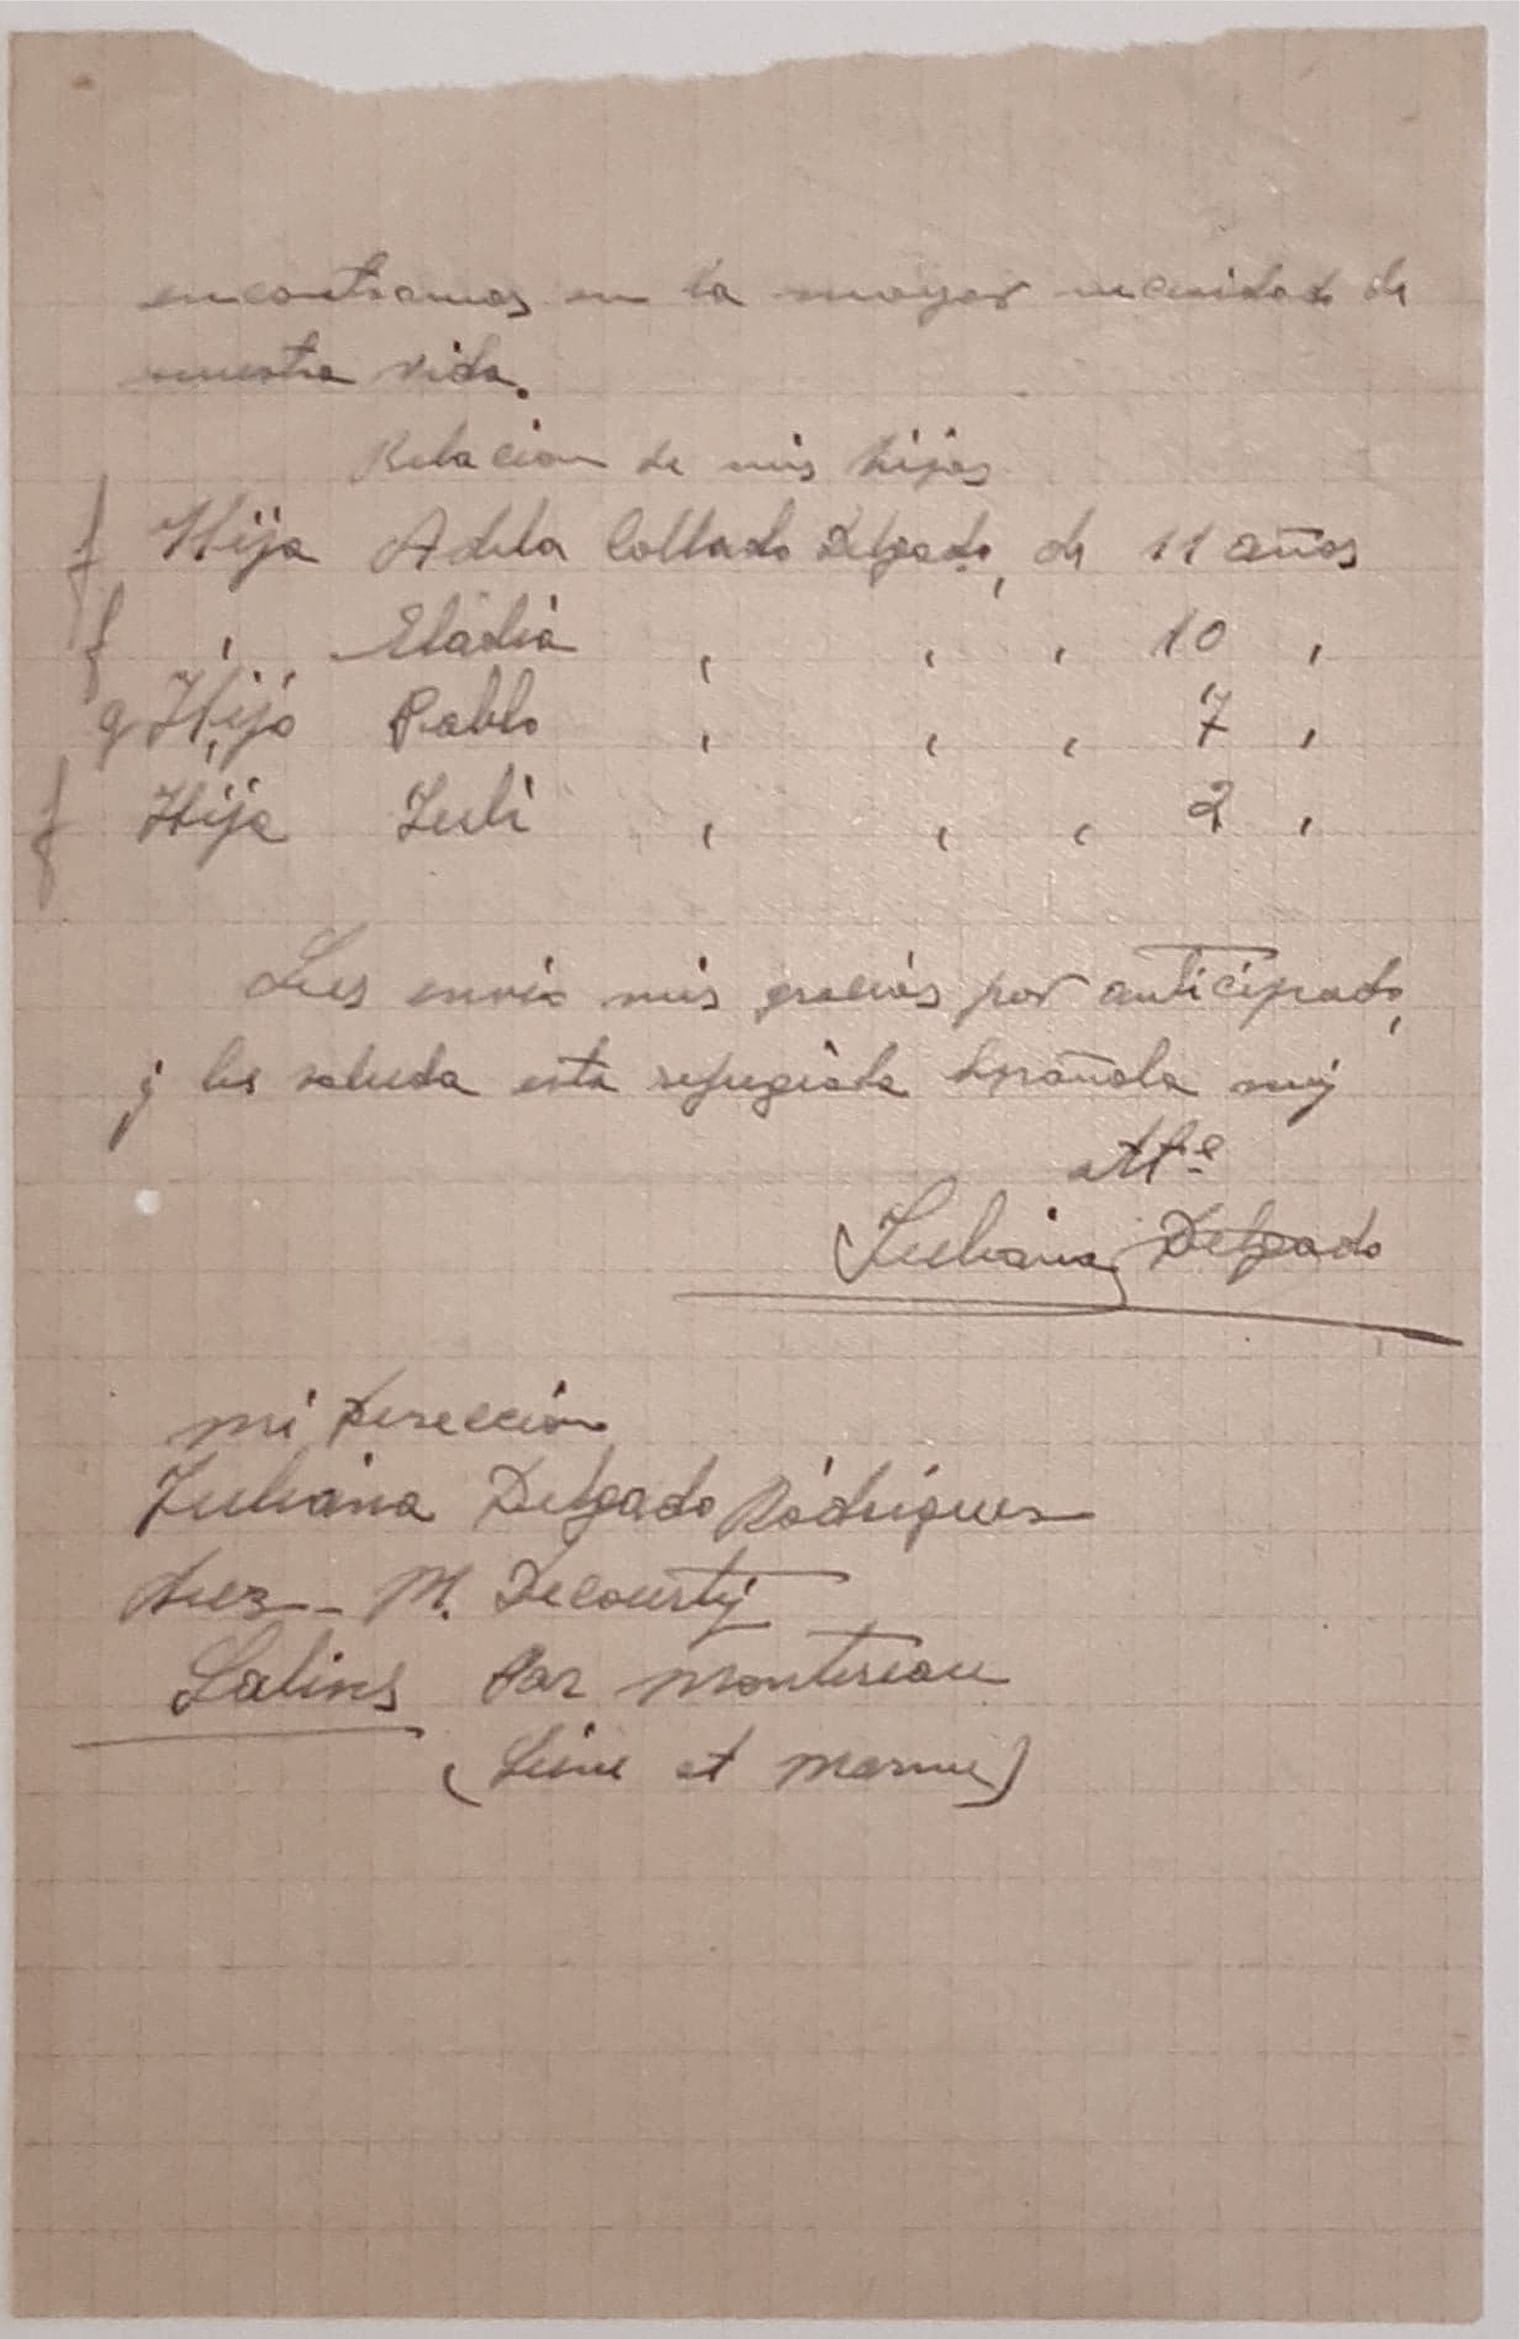 encontramos en la mayor necesidad de
nuestra vida.
Relacion de mis hijos
f Hija Adela Collado Delgado, de 11 años
f , Eladia , , , 10 ,
g Hijo Pablo , , , 7 ,
f Hija Juli , , , 2 ,
Les envio mis gracias por anticipado,
y les saluda esta refugiada Española muy
attª
Juliana Delgado
mi Dirección
Juliana Delgado Rodrigues
chez - M. Decourty
Salins Par Montereau
(Seine et Marne)